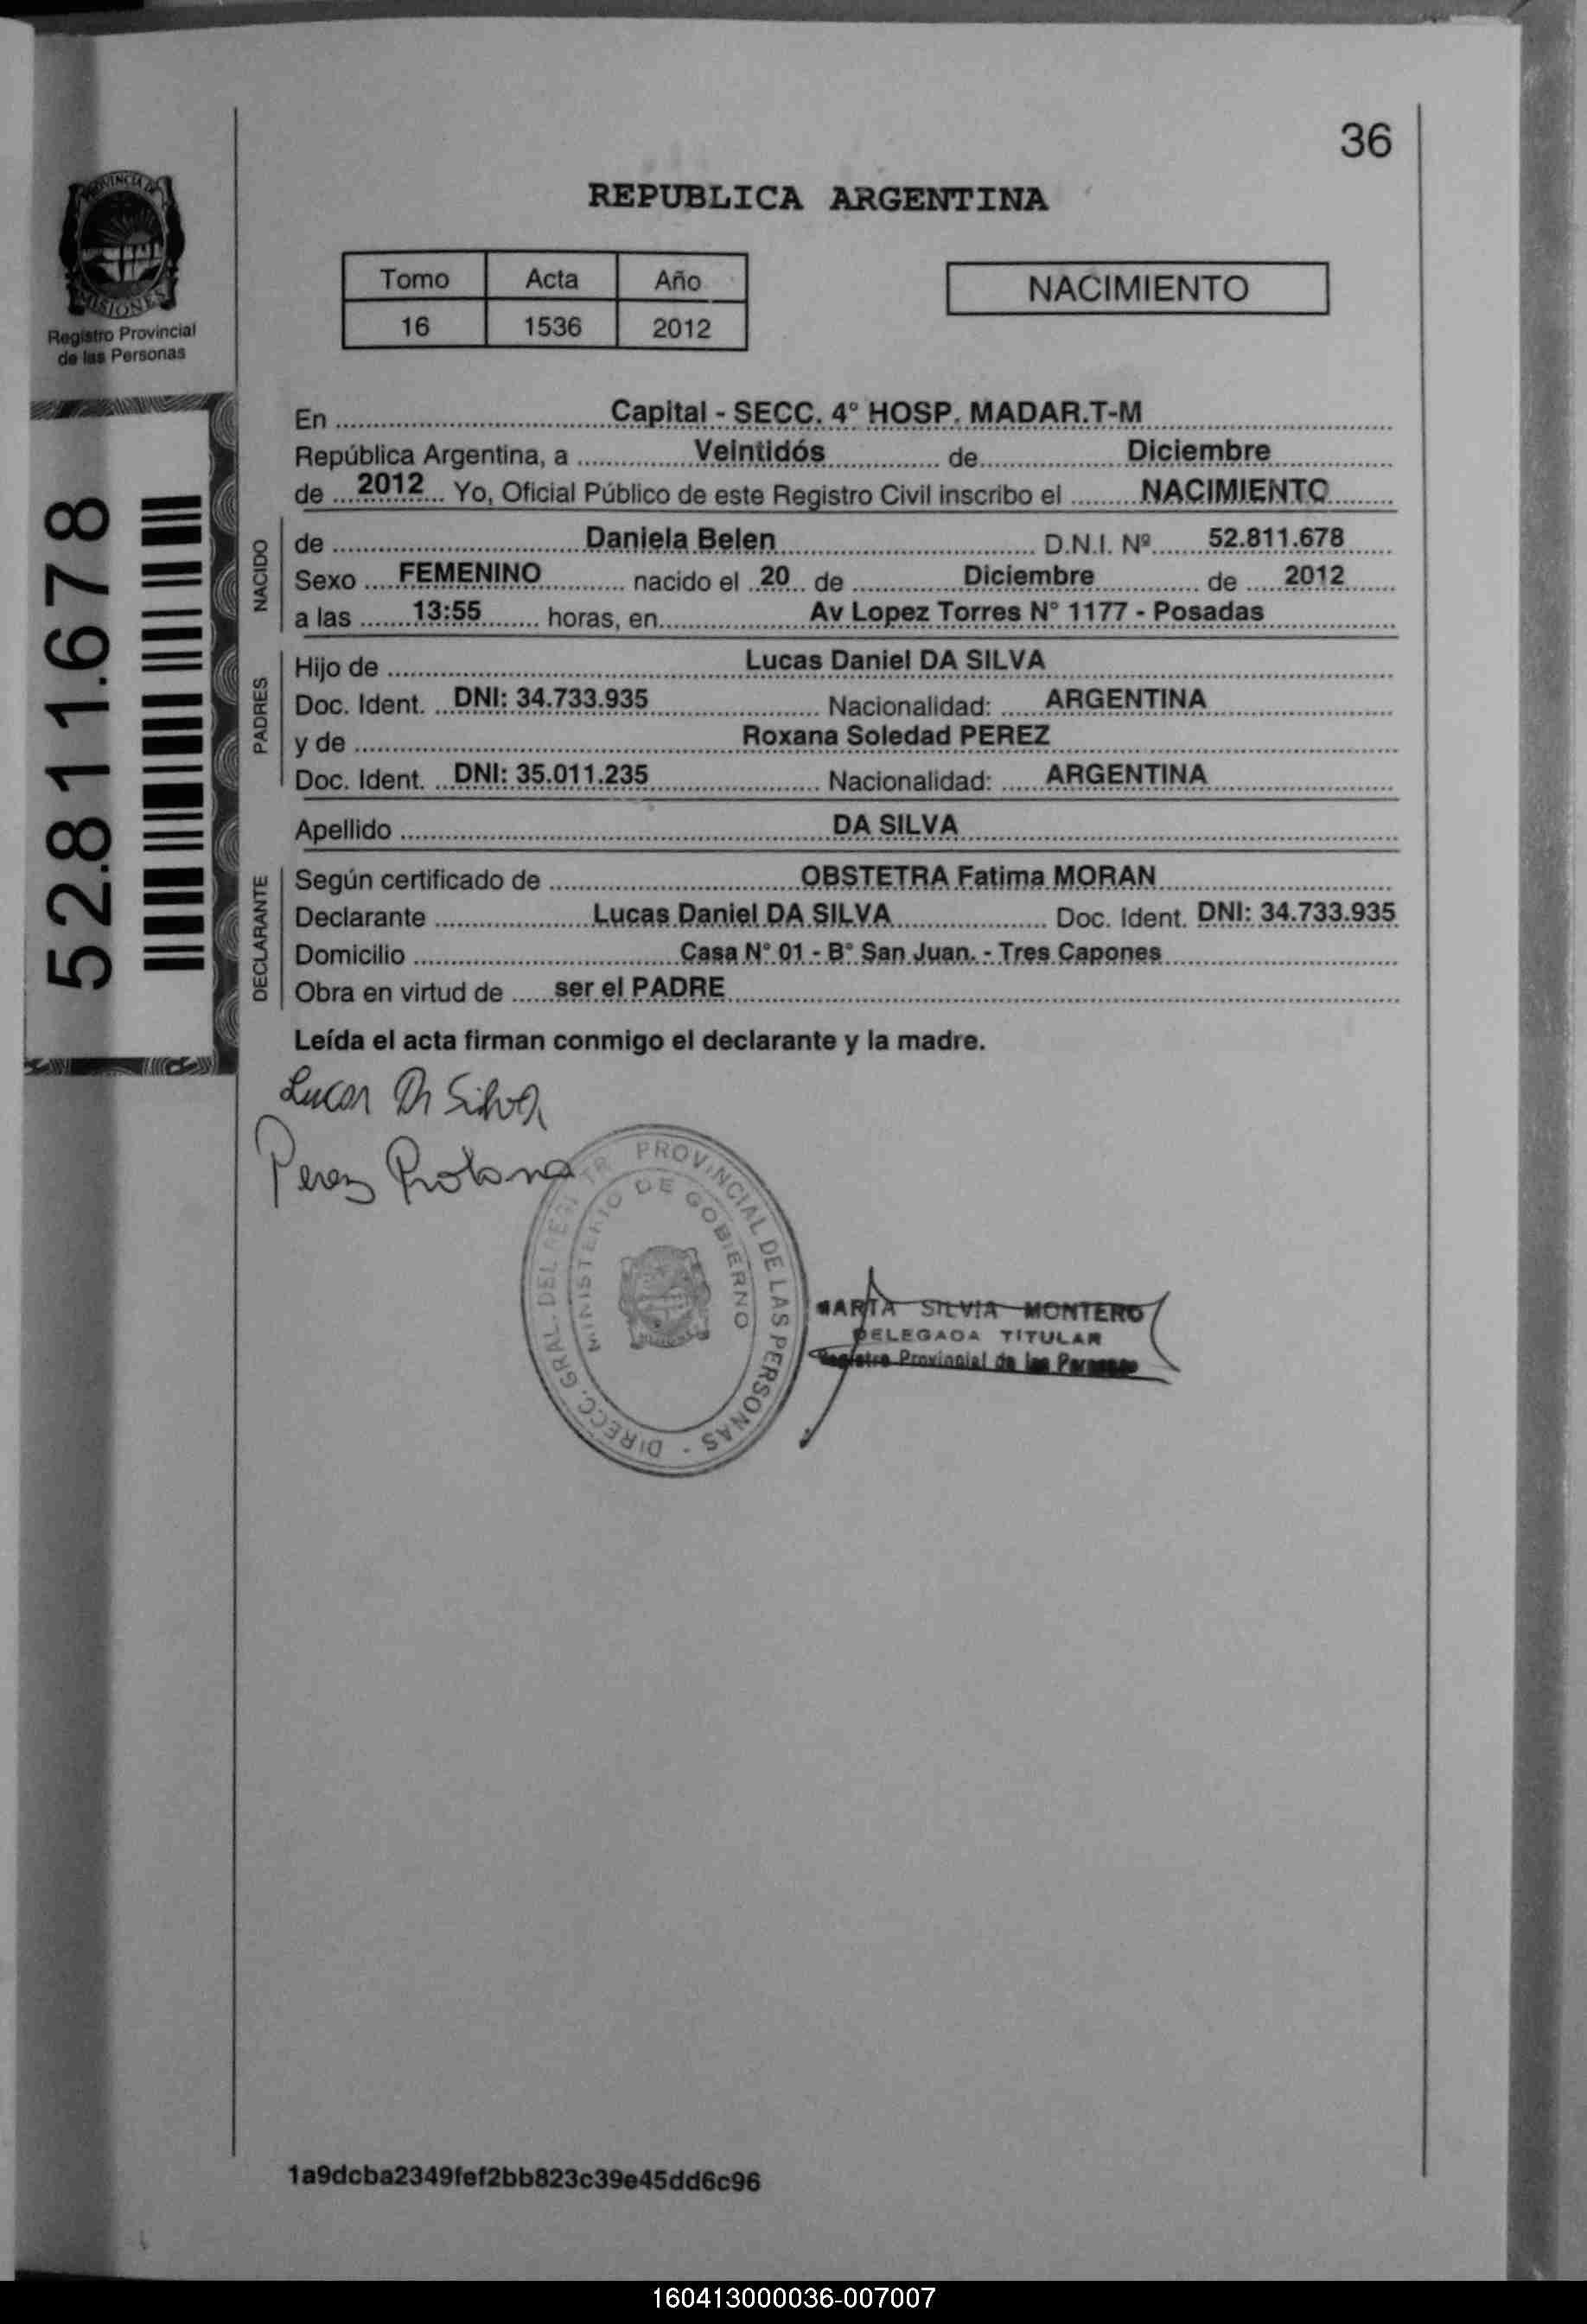 36
PROVINCIA DE
MISIONES
Registro Provincial
de las Personas
REPUBLICA ARGENTINA
Tomo Acta Año
16 1536 2012
NACIMIENTO
52.811.678
En Capital - SECC. 4° HOSP. MADAR.T-M
República Argentina, a Veintidós de Diciembre
de 2012 Yo, Oficial Público de este Registro Civil inscribo el NACIMIENTO
NACIDO
de Daniela Belen D.N.I. Nº 52.811.678
Sexo FEMENINO nacido el 20 de Diciembre de 2012
a las 13:55 horas, en Av Lopez Torres N° 1177 - Posadas
PADRES
Hijo de Lucas Daniel DA SILVA
Doc. Ident. DNI: 34.733.935 Nacionalidad: ARGENTINA
y de Roxana Soledad PEREZ
Doc. Ident. DNI: 35.011.235 Nacionalidad: ARGENTINA
Apellido DA SILVA
DECLARANTE
Según certificado de OBSTETRA Fatima MORAN
Declarante Lucas Daniel DA SILVA Doc. Ident. DNI: 34.733.935
Domicilio Casa N° 01 - B° San Juan. - Tres Capones
Obra en virtud de ser el PADRE
Leída el acta firman conmigo el declarante y la madre.
Lucas Da Silva
Perez
DIRECC. GRAL. DEL PROVINCIAL DE LAS PERSONAS -
MINISTERIO DE GOBIERNO
MARTA SILVIA MONTERO
DELEGADA TITULAR
Registro Provincial de las Personas
1a9dcba2349fef2bb823c39e45dd6c96
160413000036-007007